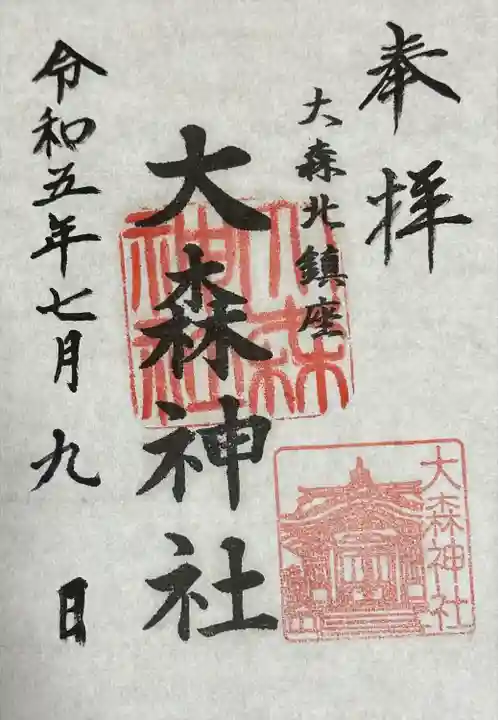 奉拝
大森北鎮座
大森神社
大森神社
大森神社
令和五年七月九日